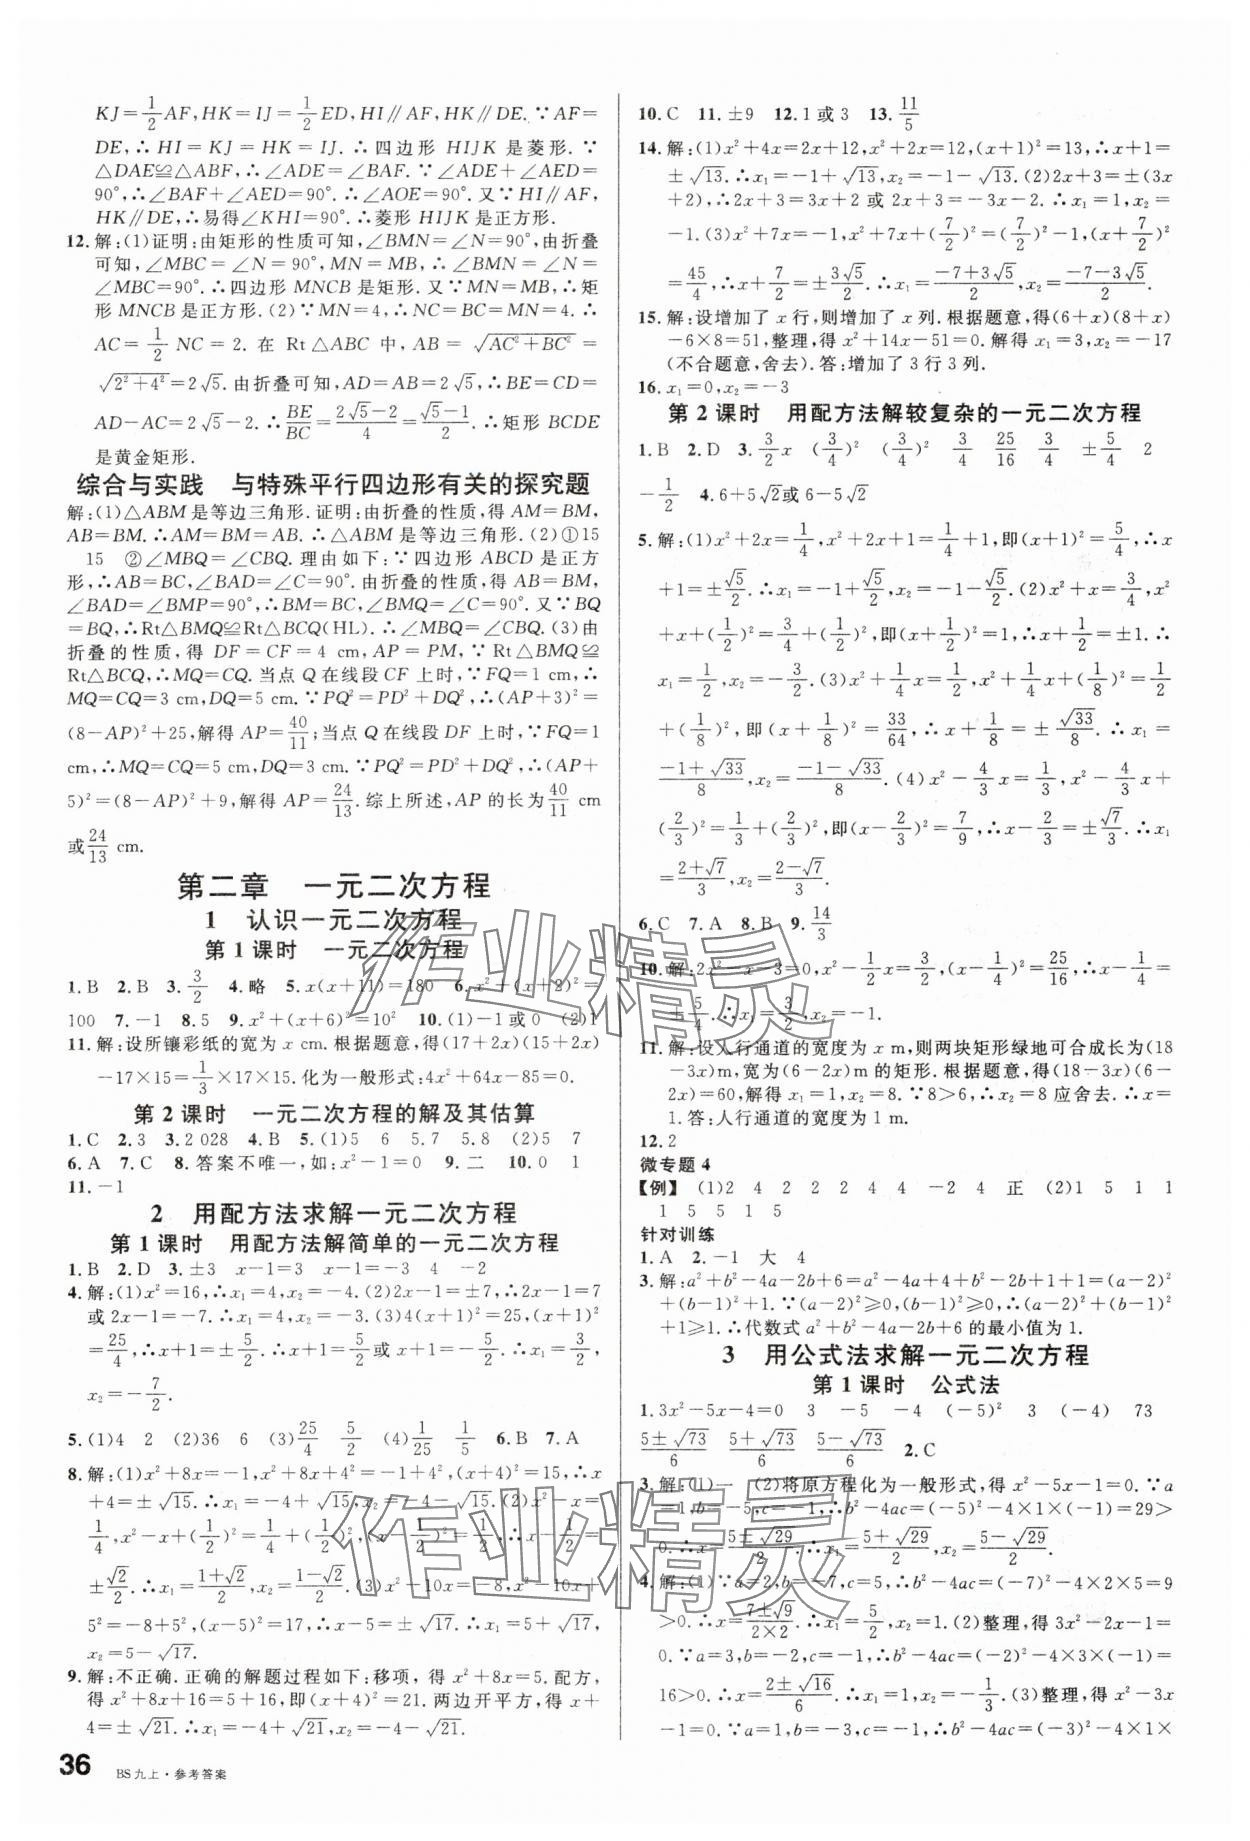 KJ=1/2AF,HK=IJ=1/2ED,HI∥AF,HK∥DE.∵AF=
DE,∴HI=KJ=HK=IJ.∴四边形HIJK是菱形.∵
△DAE≌△ABF,∴∠ADE=∠BAF.∵∠ADE+∠AED=
90°,∴∠BAF+∠AED=90°.∴∠AOE=90°.又∵HI∥AF,
HK∥DE,∴易得∠KHI=90°.∴菱形HIJK是正方形.
12.解:(1)证明:由矩形的性质可知,∠BMN=∠N=90°,由折叠
可知,∠MBC=∠N=90°,MN=MB,∴∠BMN=∠N=
∠MBC=90°.∴四边形MNCB是矩形.又∵MN=MB,∴矩
形MNCB是正方形.(2)∵MN=4,∴NC=BC=MN=4.∴
AC=1/2NC=2.在Rt△ABC中,AB=√(AC²+BC²)=
√(2²+4²)=2√5.由折叠可知,AD=AB=2√5,∴BE=CD=
AD-AC=2√5-2.∴BE/BC=(2√5-2)/4=(√5-1)/2.∴矩形BCDE
是黄金矩形.
综合与实践 与特殊平行四边形有关的探究题
解:(1)△ABM是等边三角形.证明:由折叠的性质,得AM=BM,
AB=BM.∴AM=BM=AB.∴△ABM是等边三角形.(2)①15
15 ②∠MBQ=∠CBQ.理由如下:∵四边形ABCD是正方
形,∴AB=BC,∠BAD=∠C=90°.由折叠的性质,得AB=BM,
∠BAD=∠BMP=90°,∴BM=BC,∠BMQ=∠C=90°.又∵BQ
=BQ,∴Rt△BMQ≌Rt△BCQ(HL).∴∠MBQ=∠CBQ.(3)由
折叠的性质,得DF=CF=4 cm,AP=PM,∵Rt△BMQ≌
Rt△BCQ,∴MQ=CQ.当点Q在线段CF上时,∵FQ=1 cm,∴
MQ=CQ=3 cm,DQ=5 cm.∵PQ²=PD²+DQ²,∴(AP+3)²=
(8-AP)²+25,解得AP=40/11;当点Q在线段DF上时,∵FQ=1
cm,∴MQ=CQ=5 cm,DQ=3 cm.∵PQ²=PD²+DQ²,∴(AP+
5)²=(8-AP)²+9,解得AP=24/13.综上所述,AP的长为40/11 cm
或24/13 cm.
第二章 一元二次方程
1 认识一元二次方程
第1课时 一元二次方程
1.B 2.B 3.3/2 4.略 5.x(x+11)=180 6.x²+(x+2)²=
100 7.-1 8.5 9.x²+(x+6)²=10² 10.(1)-1或0 (2)1
11.解:设所镶彩纸的宽为x cm.根据题意,得(17+2x)(15+2x)
-17×15=1/3×17×15.化为一般形式:4x²+64x-85=0.
第2课时 一元二次方程的解及其估算
1.C 2.3 3.2 028 4.B 5.(1)5 6 5.7 5.8 (2)5 7
6.A 7.C 8.答案不唯一,如:x²-1=0 9.二 10.0 1
11.-1
2 用配方法求解一元二次方程
第1课时 用配方法解简单的一元二次方程
1.B 2.D 3.±3 x-1=3 x-1=-3 4 -2
4.解:(1)x²=16,∴x₁=4,x₂=-4.(2)2x-1=±7,∴2x-1=7
或2x-1=-7.∴x₁=4,x₂=-3.(3)4(x+1)²=25,(x+1)²
=25/4,∴x+1=±5/2.∴x+1=5/2或x+1=-5/2.∴x₁=3/2,
x₂=-7/2.
5.(1)4 2 (2)36 6 (3)25/4 5/2 (4)1/25 1/5 6.B 7.A
8.解:(1)x²+8x=-1,x²+8x+4²=-1+4²,(x+4)²=15,∴x
+4=±√15.∴x₁=-4+√15,x₂=-4-√15.(2)x²-x=
1/4,x²-x+(1/2)²=1/4+(1/2)²,(x-1/2)²=1/2,∴x-1/2=
±√2/2.∴x₁=(1+√2)/2,x₂=(1-√2)/2.(3)x²-10x=-8,x²-10x+
5²=-8+5²,(x-5)²=17,∴x-5=±√17.∴x₁=5+√17,
x₂=5-√17.
9.解:不正确.正确的解题过程如下:移项,得x²+8x=5.配方,
得x²+8x+16=5+16,即(x+4)²=21.两边开平方,得x+
4=±√21.∴x₁=-4+√21,x₂=-4-√21.
10.C 11.±9 12.1或3 13.11/5
14.解:(1)x²+4x=2x+12,x²+2x=12,(x+1)²=13,∴x+1=
±√13.∴x₁=-1+√13,x₂=-1-√13.(2)2x+3=±(3x
+2),∴2x+3=3x+2或2x+3=-3x-2.∴x₁=1,x₂=
-1.(3)x²+7x=-1,x²+7x+(7/2)²=(7/2)²-1,(x+7/2)²
=45/4,∴x+7/2=±3√5/2.∴x₁=(-7+3√5)/2,x₂=(-7-3√5)/2.
15.解:设增加了x行,则增加了x列.根据题意,得(6+x)(8+x)
-6×8=51,整理,得x²+14x-51=0.解得x₁=3,x₂=-17
(不合题意,舍去).答:增加了3行3列.
16.x₁=0,x₂=-3
第2课时 用配方法解较复杂的一元二次方程
1.B 2.D 3.3/2x (3/4)² (3/4)² 3/4 25/16 3/4 ±5/4 2
-1/2 4.6+5√2或6-5√2
5.解:(1)x²+2x=1/4,x²+2x+1=1/4+1,即(x+1)²=5/4,∴x
+1=±√5/2.∴x₁=-1+√5/2,x₂=-1-√5/2.(2)x²+x=3/4,x²
+x+(1/2)²=3/4+(1/2)²,即(x+1/2)²=1,∴x+1/2=±1.∴
x₁=1/2,x₂=-3/2.(3)x²+1/4x=1/2,x²+1/4x+(1/8)²=1/2
+(1/8)²,即(x+1/8)²=33/64,∴x+1/8=±√33/8.∴x₁=
(-1+√33)/8,x₂=(-1-√33)/8.(4)x²-4/3x=1/3,x²-4/3x+
(2/3)²=1/3+(2/3)²,即(x-2/3)²=7/9,∴x-2/3=±√7/3.∴x₁
=(2+√7)/3,x₂=(2-√7)/3.
6.C 7.A 8.B 9.14/3
10.解:2x²-x-3=0,x²-1/2x=3/2,(x-1/4)²=25/16,∴x-1/4=
±5/4.∴x₁=3/2,x₂=-1.
11.解:设人行通道的宽度为x m,则两块矩形绿地可合成长为(18
-3x)m,宽为(6-2x)m的矩形.根据题意,得(18-3x)(6-
2x)=60,解得x₁=1,x₂=8.∵8>6,∴x=8应舍去.∴x=
1.答:人行通道的宽度为1 m.
12.2
微专题4
【例】 (1)2 4 2 2 2 4 4 -2 4 正 (2)1 5 1 1
1 5 5 1 5
针对训练
1.A 2.-1 大 4
3.解:a²+b²-4a-2b+6=a²-4a+4+b²-2b+1+1=(a-2)²
+(b-1)²+1.∵(a-2)²≥0,(b-1)²≥0,∴(a-2)²+(b-1)²
+1≥1.∴代数式a²+b²-4a-2b+6的最小值为1.
3 用公式法求解一元二次方程
第1课时 公式法
1.3x²-5x-4=0 3 -5 -4 (-5)² 3 (-4) 73
(5±√73)/6 (5+√73)/6 (5-√73)/6 2.C
3.解:(1)一 (2)将原方程化为一般形式,得x²-5x-1=0.∵a
=1,b=-5,c=-1,∴b²-4ac=(-5)²-4×1×(-1)=29>
0.∴x=(5±√29)/2.∴x₁=(5+√29)/2,x₂=(5-√29)/2.
4.解:(1)∵a=2,b=-7,c=5,∴b²-4ac=(-7)²-4×2×5=9
>0.∴x=(7±√9)/(2×2).∴x₁=5/2,x₂=1.(2)整理,得3x²-2x-1=
0.∵a=3,b=-2,c=-1,∴b²-4ac=(-2)²-4×3×(-1)=
16>0.∴x=(2±√16)/6.∴x₁=1,x₂=-1/3.(3)整理,得x²-3x
-1=0.∵a=1,b=-3,c=-1,∴b²-4ac=(-3)²-4×1×
36 BS九上·参考答案
作业精灵
作业精灵